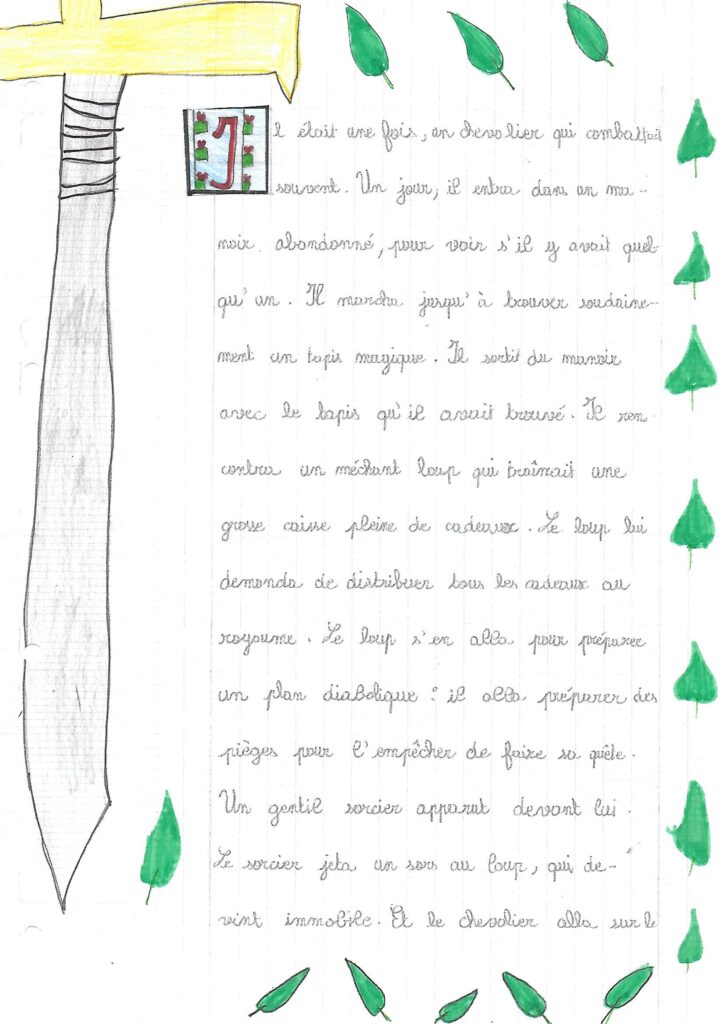 Il était une fois, un chevalier qui combattait
souvent. Un jour, il entra dans un ma-
noir abandonné, pour voir s'il y avait quel-
qu'un. Il marcha jusqu'à trouver soudaine-
ment un tapis magique. Il sortit du manoir
avec le tapis qu'il avait trouvé. Il ren
contra un méchant loup qui traînait une
grosse caisse pleine de cadeaux. Le loup lui
demanda de distribuer tous les cadeaux au
royaume. Le loup s'en alla pour préparer
un plan diabolique : il alla préparer des
pièges pour l'empêcher de faire sa quête.
Un gentil sorcier apparut devant lui.
Le sorcier jeta un sors au loup, qui de-
vint immobile. Et le chevalier alla sur le